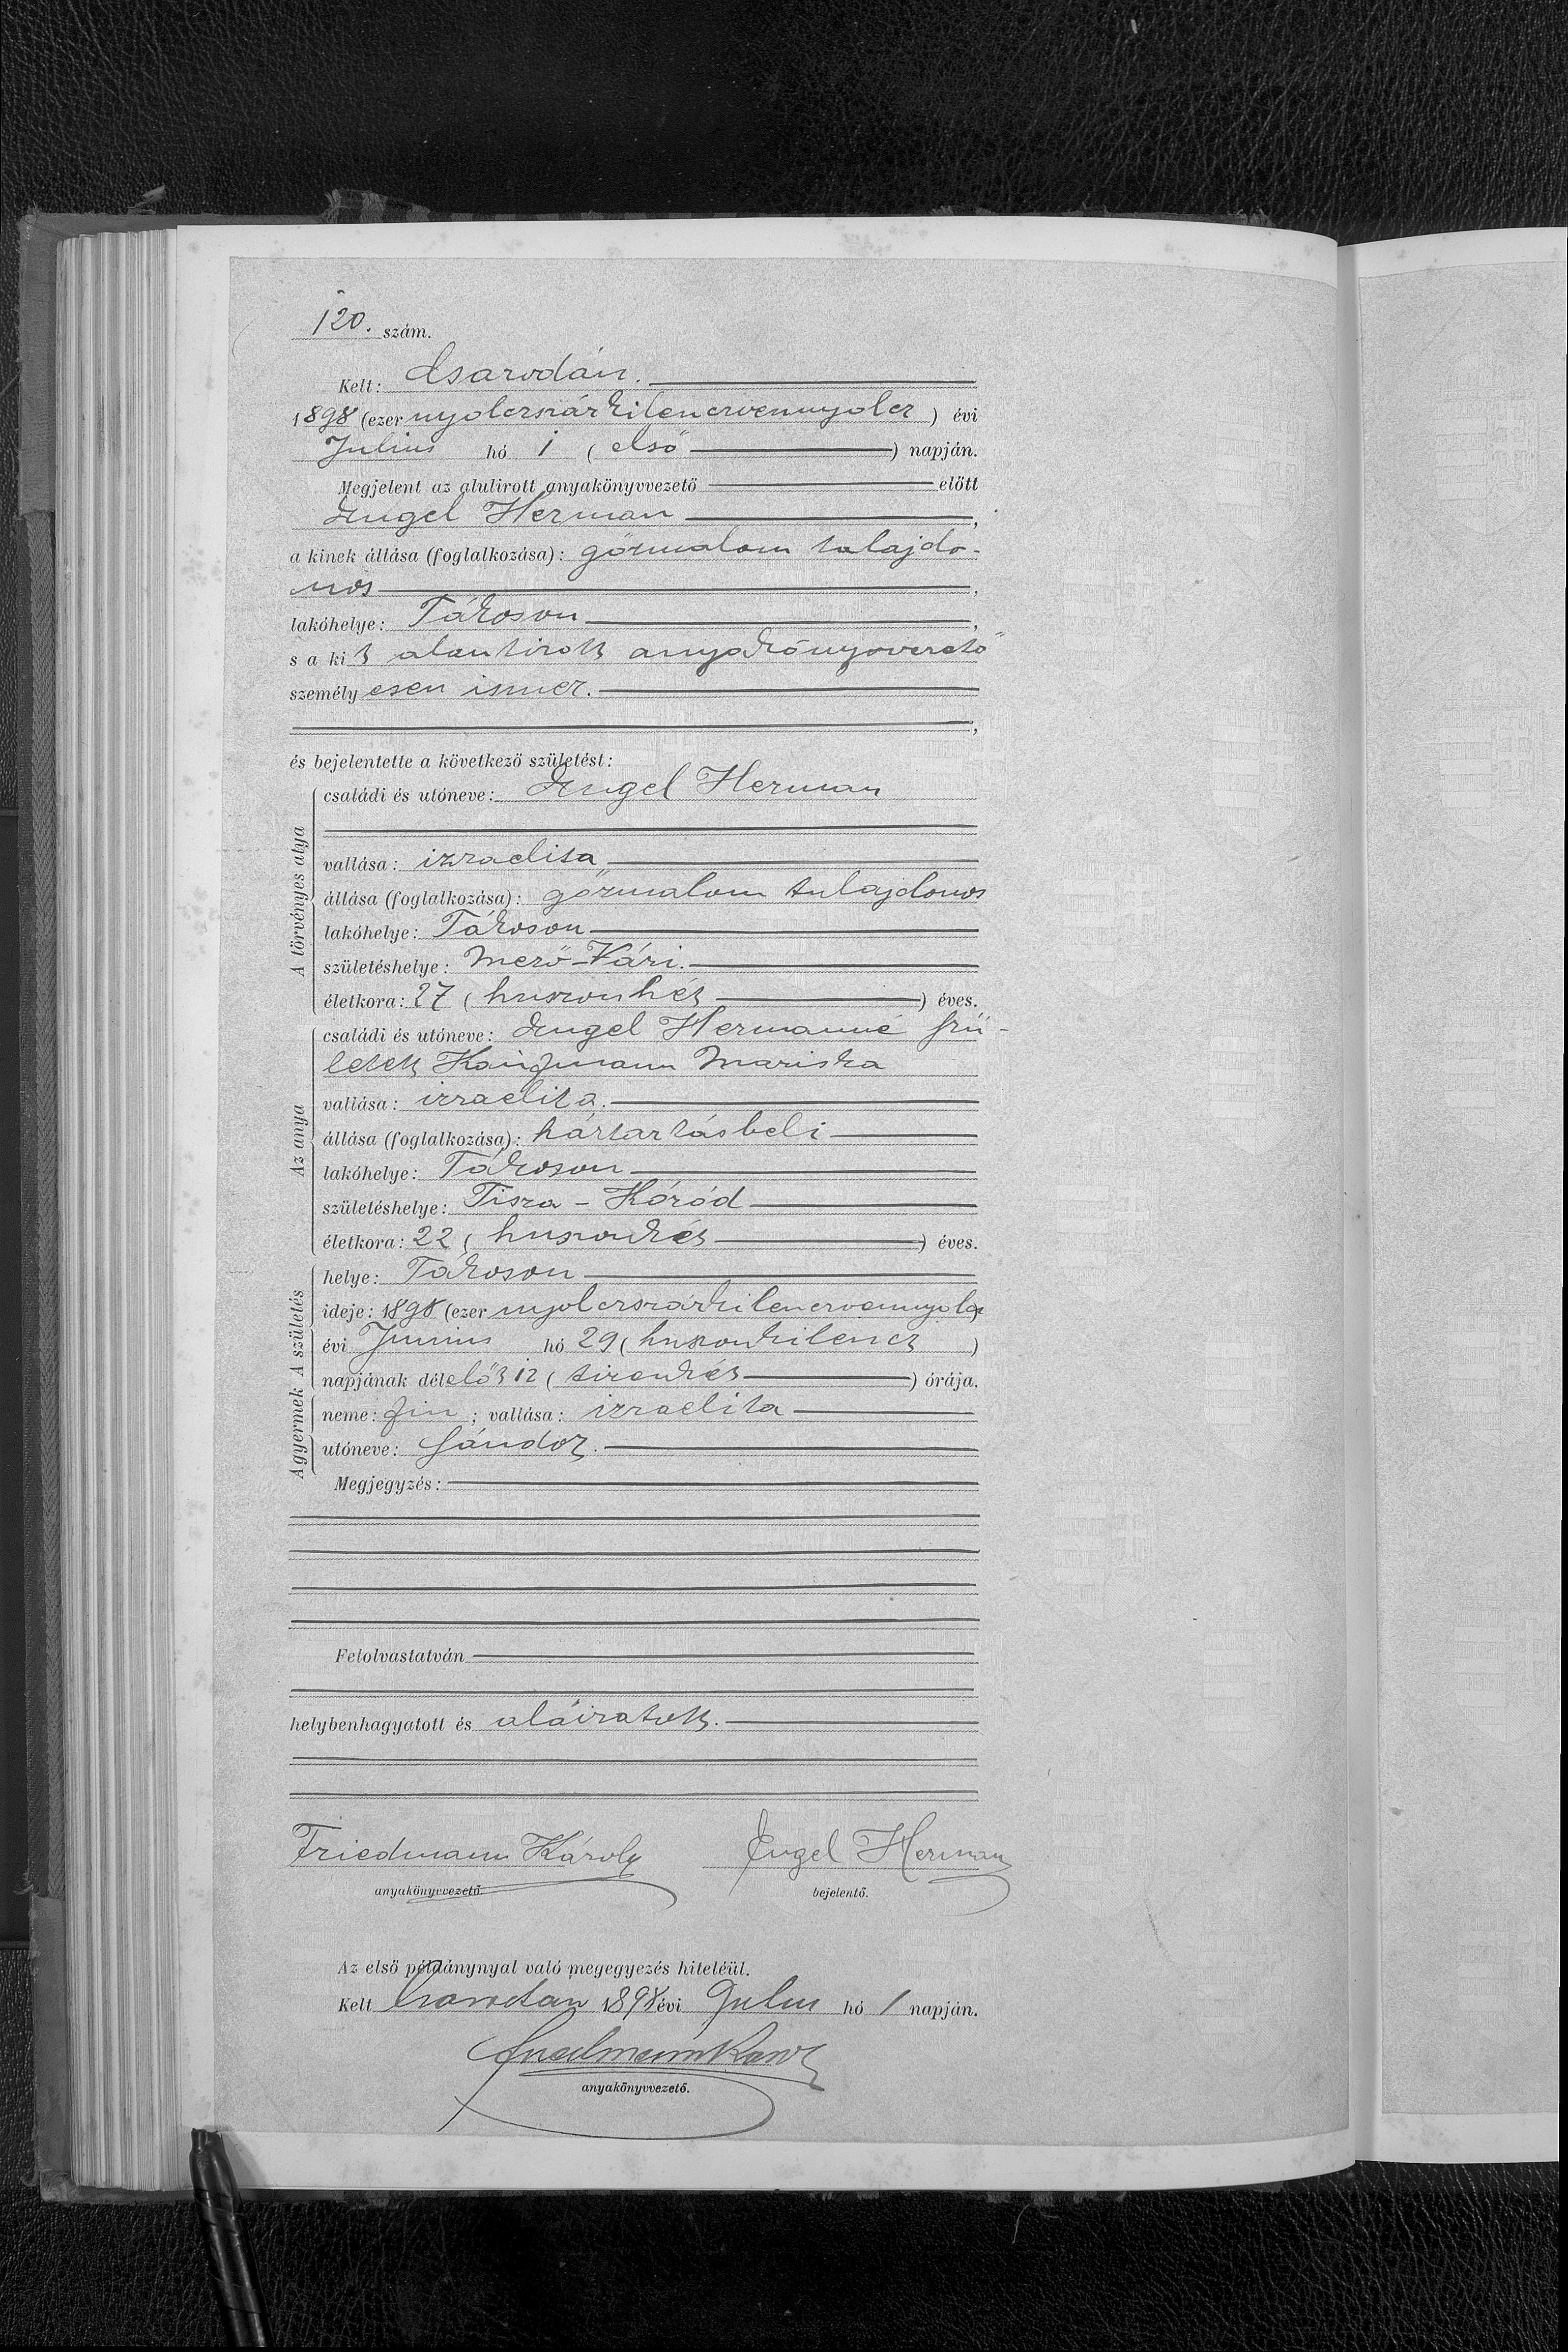 120. szám.
Kelt: Csarodán.
1898 (ezer nyolczszázkilenczvennyolcz) évi
Julius hó 1 (első) napján.
Megjelent az alulirott anyakönyvvezető előtt
Engel Herman,
a kinek állása (foglalkozása): gőzmalom tulajdo-
nos,
lakóhelye: Tákoson,
s a kit alantirott anyakönyvvezető
személyesen ismer.
,
és bejelentette a következő születést:
A törvényes atya
családi és utóneve: Engel Herman
vallása: izraelita
állása (foglalkozása): gőzmalom tulajdonos
lakóhelye: Tákoson
születéshelye: Mező-Vári.
életkora: 27 (huszonhét) éves.
Az anya
családi és utóneve: Engel Hermanné szü-
letett Kaufmann Mariska
vallása: izraelita.
állása (foglalkozása): háztartásbeli
lakóhelye: Tákoson
születéshelye: Tisza-Kóród
életkora: 22 (huszonkét) éves.
A születés
helye: Tákoson
ideje: 1898 (ezer nyolczszázkilenczvennyolcz
évi Junius hó 29 (huszonkilencz)
napjának délelőtt 12 (tizenkét) órája.
A gyermek
neme: fiu; vallása: izraelita
utóneve: Sándor.
Megjegyzés:
Felolvastatván
helybenhagyatott és aláiratott.
Friedmann Károly Engel Herman
anyakönyvvezető. bejelentő.
Az első példánynyal való megegyezés hiteléül.
Kelt Csarodan 1898 évi Julius hó 1 napján.
Friedmann Karoly
anyakönyvvezető.